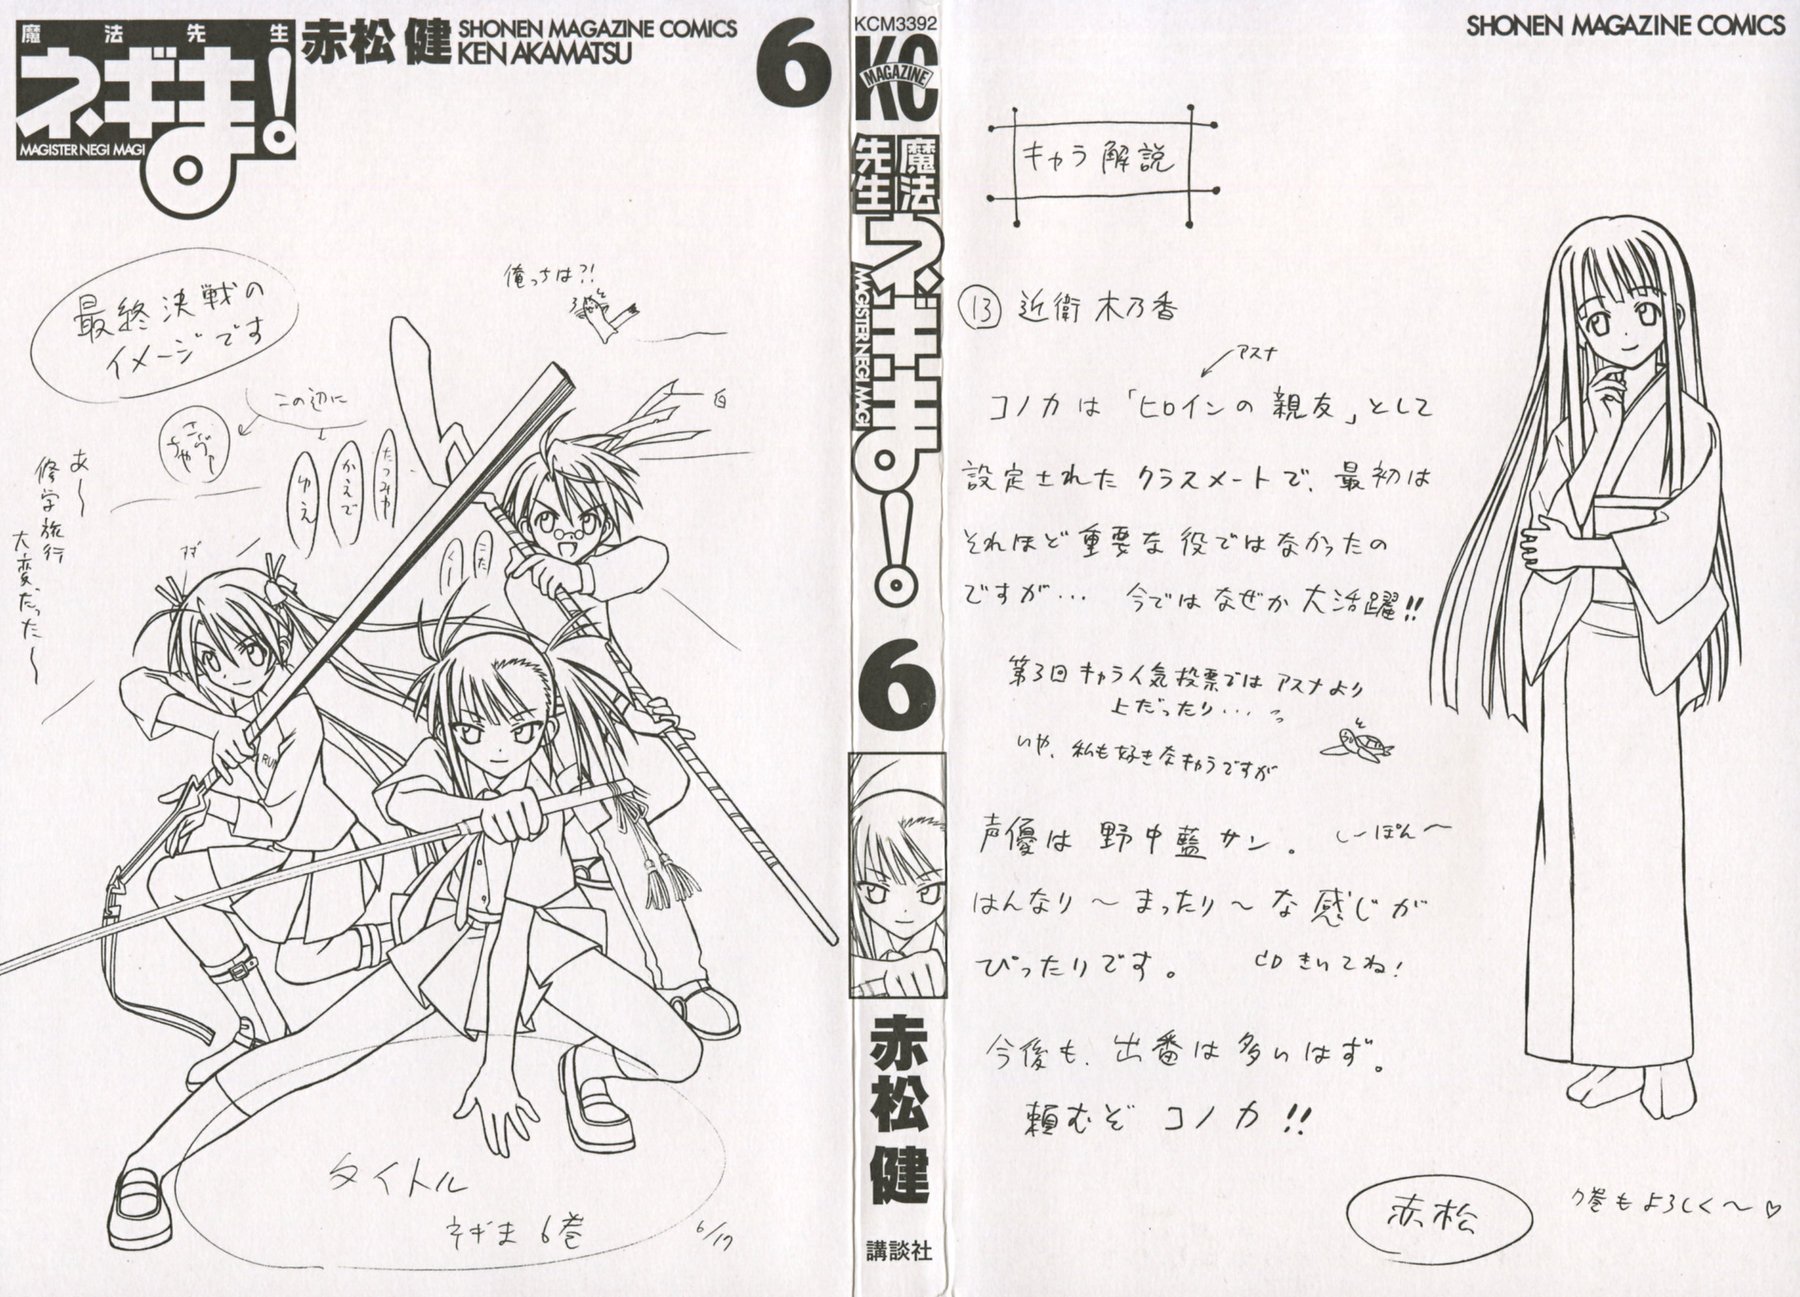 魔法先生
ネギま!
MAGISTER NEGI MAGI
赤松 健
SHONEN MAGAZINE COMICS
KEN AKAMATSU
6
最終決戦の
イメージです
俺っちは?!
この辺に
たつみや
かえで
ゆえ
こた
くー
白
あ〜
修学旅行
大変だった〜
RUN
タイトル
ネギま 6巻
6/17
KCM3392
KC
MAGAZINE
魔法先生
ネギま!
MAGISTER NEGI MAGI
6
赤松 健
講談社
SHONEN MAGAZINE COMICS
キャラ解説
⑬ 近衛 木乃香
アスナ
コノカは「ヒロインの親友」として
設定されたクラスメートで、最初は
それほど重要な役ではなかったの
ですが... 今ではなぜか大活躍!!
第3回キャラ人気投票ではアスナより
上だったり...
いや、私も好きなキャラですが
声優は 野中藍サン。 しーぽん〜
はんなり〜まったり〜な感じが
ぴったりです。 CDきいてね!
今後も、出番は多いはず。
頼むぞ コノカ!!
赤松
7巻もよろしく〜♡